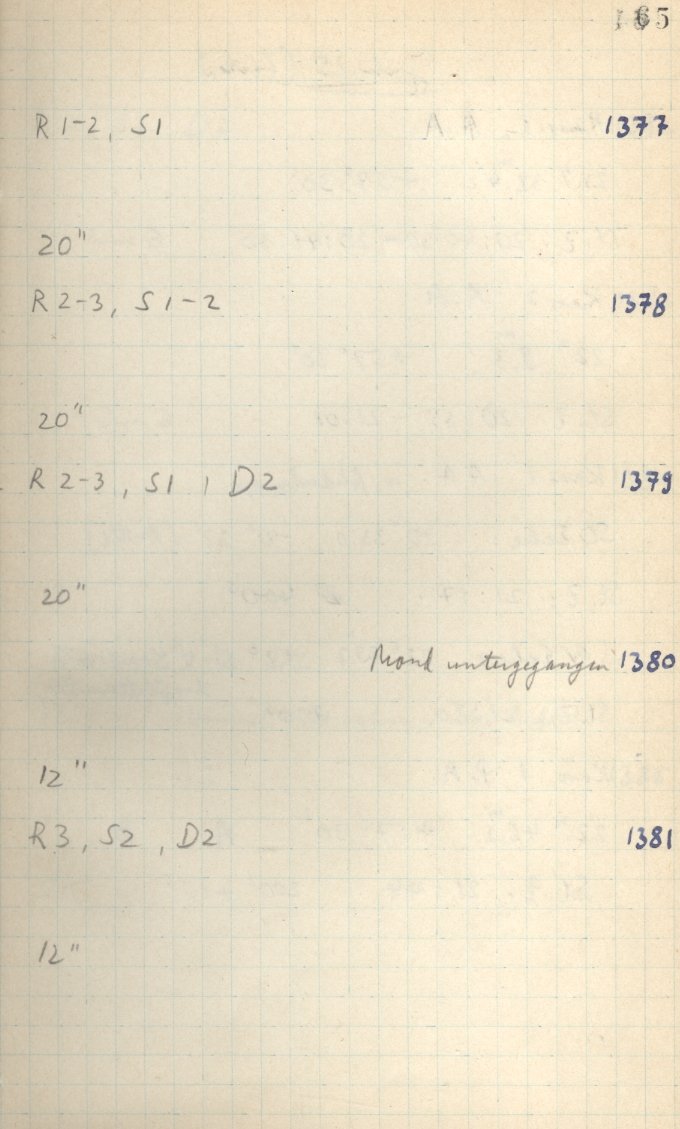 165
R 1-2, S1 1377
20"
R 2-3, S 1-2 1378
20"
R 2-3, S1, D2 1379
20"
Mond untergegangen 1380
12"
R3, S2, D2 1381
12"